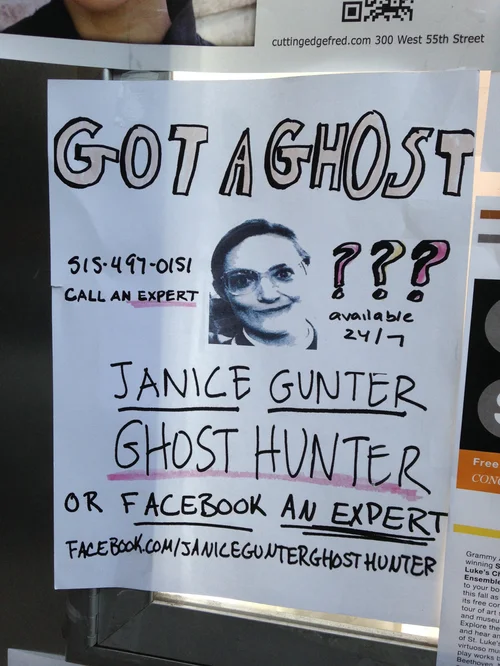 cuttingedgefred.com 300 West 55th Street
GOT A GHOST
???
515-497-0151
CALL AN EXPERT
available
24/7
JANICE GUNTER
GHOST HUNTER
OR FACEBOOK AN EXPERT
FACEBOOK.COM/JANICEGUNTERGHOSTHUNTER
Free
CON
Grammy
winning S
Luke's Ch
Ensemble
to your bo
this fall as
its free con
tour of art
and museu
Explore the
and hear an
of St. Luke'
virtuoso mu
play works b
Beetho